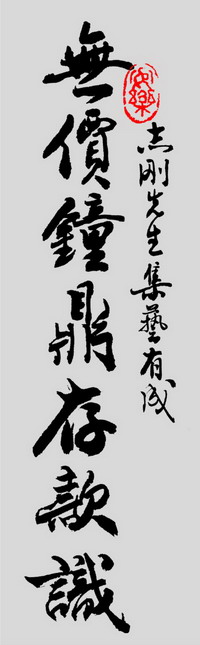 志刚先生集藝有成
無價鐘鼎存款識